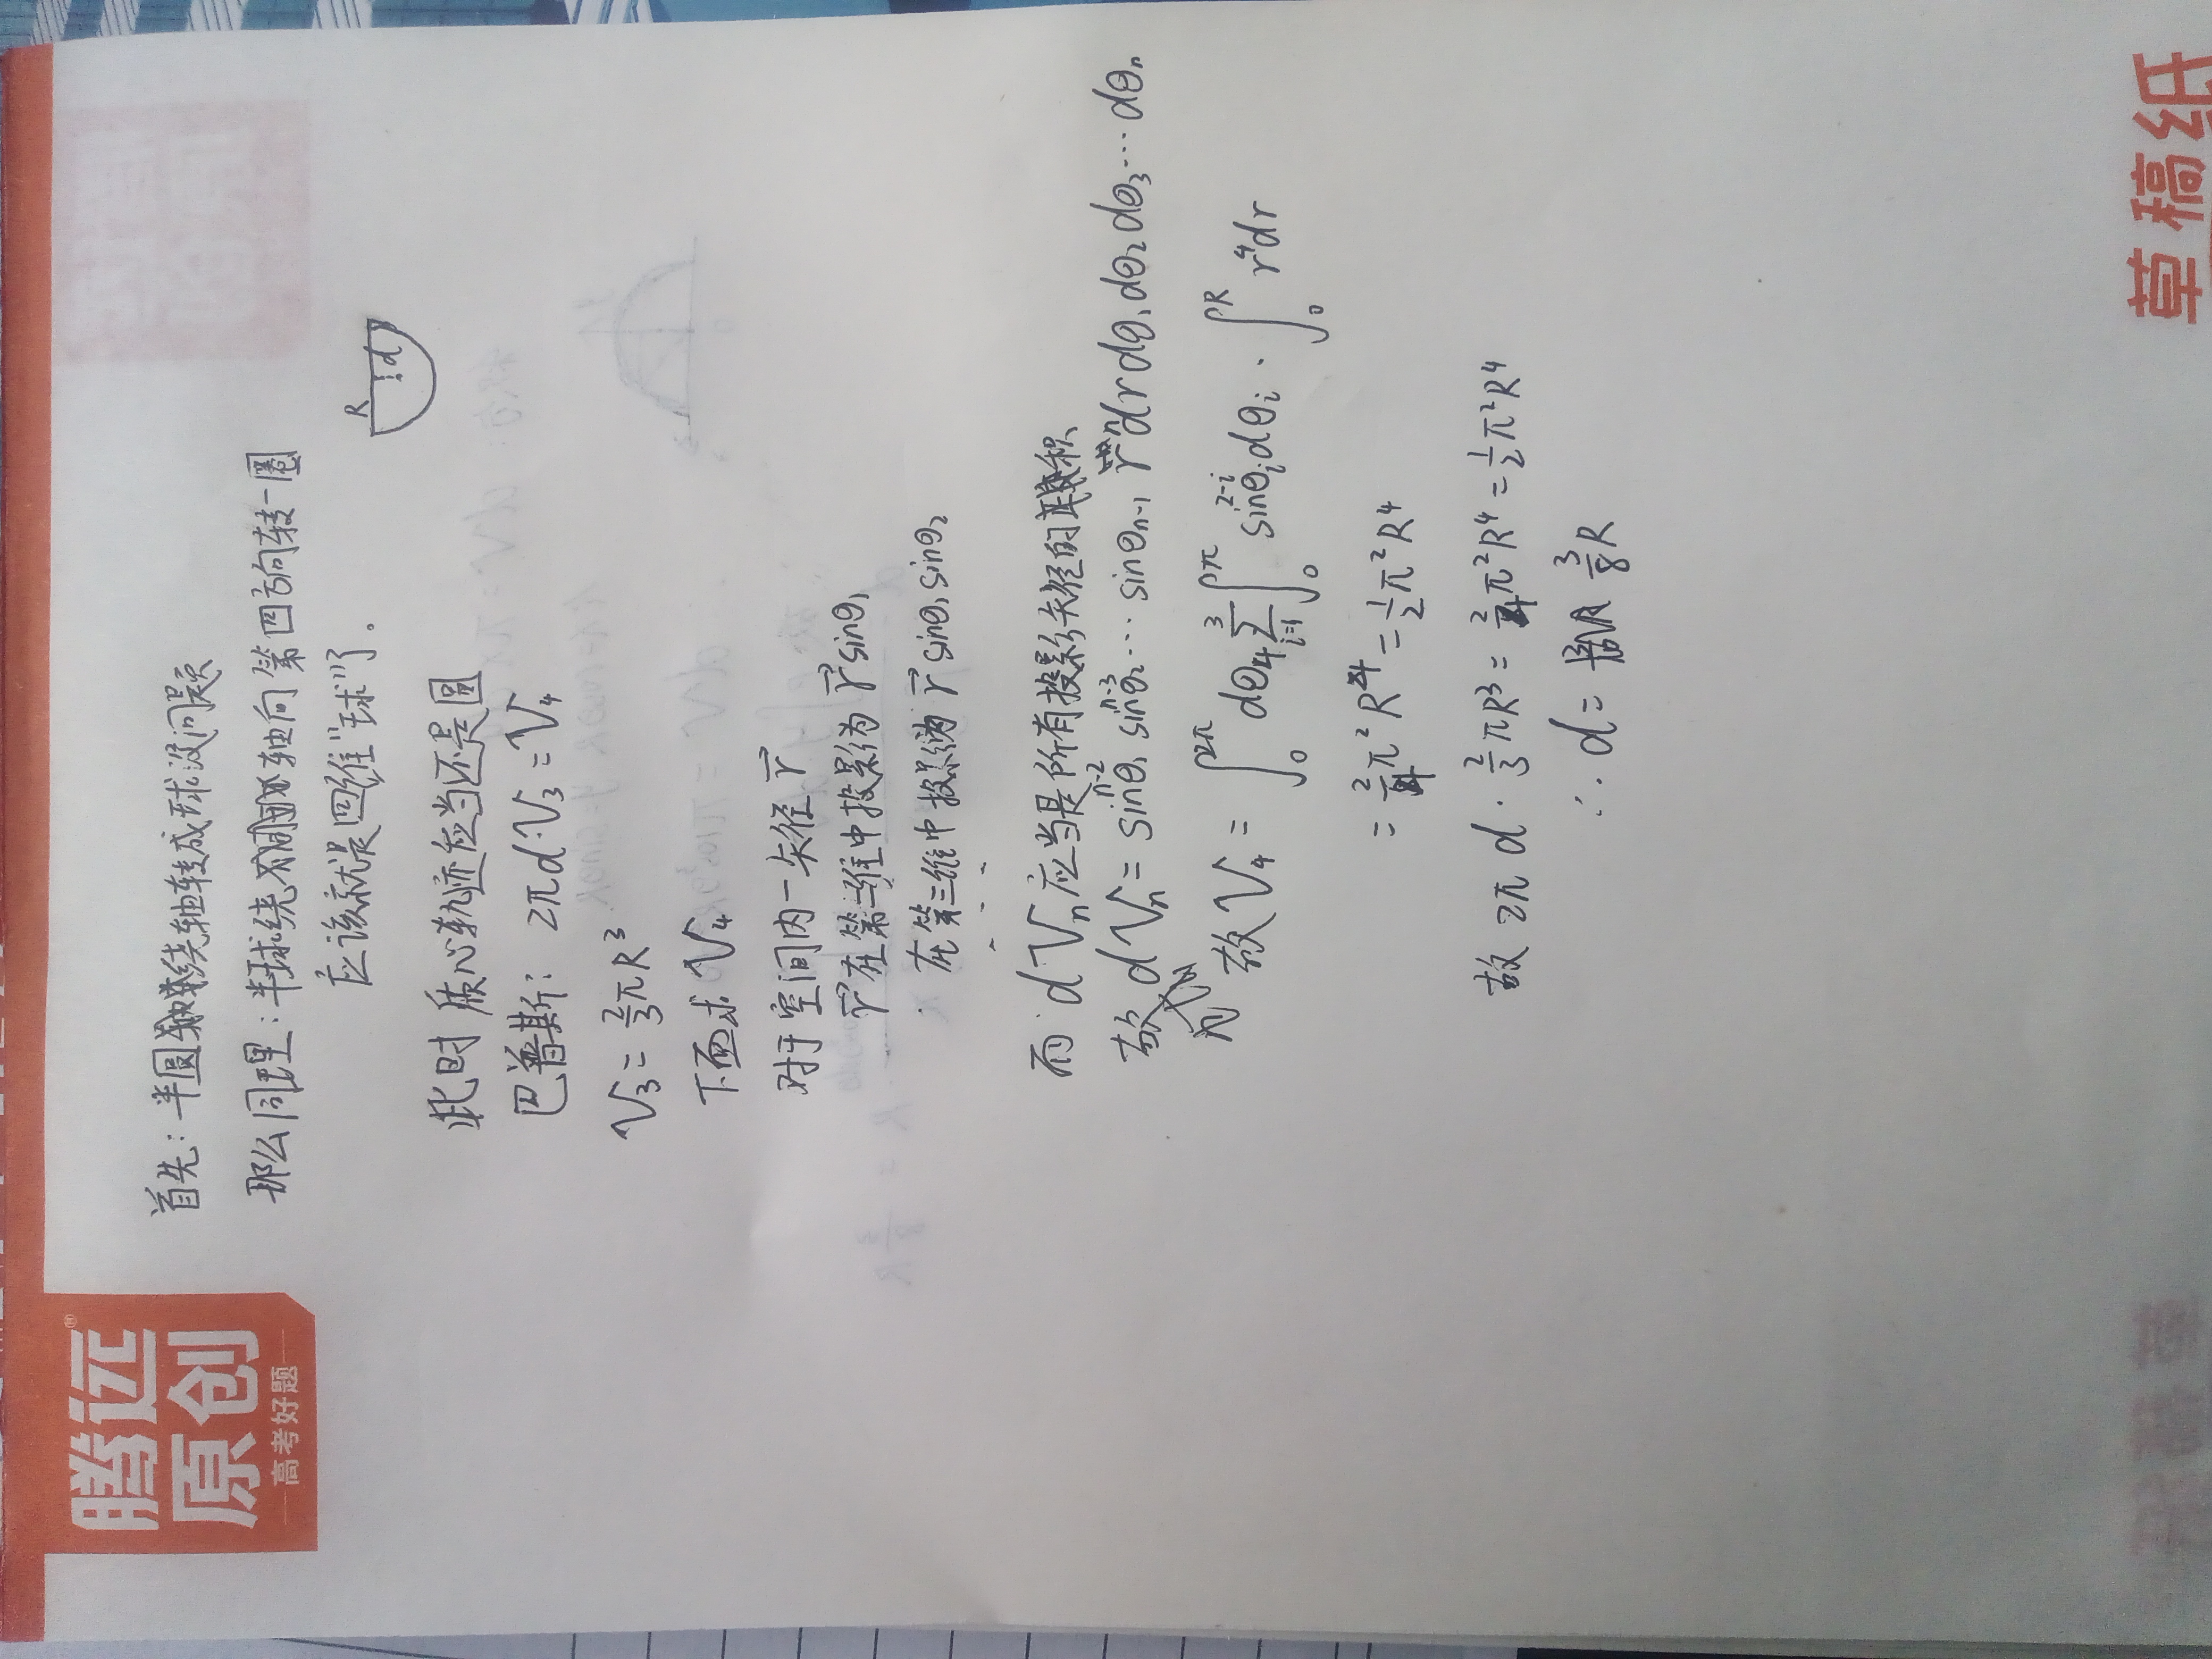 腾远®
原创
高考好题
首先：半圆绕轴转成球没问题
那么同理：半球绕轴向第四方向转一圈
应该就是四维"球"了。
R
d
此时质心轨迹应当还是圆
巴普斯：2πd·V₃=V₄
V₃=2/3πR³
下面求V₄
对于空间内一矢径r⃗
r⃗在第二维中投影为r⃗sinθ₁
在第三维中投影为r⃗sinθ₁sinθ₂
⋮
而dVₙ应当是所有投影矢径的积
故dVₙ=sinⁿ⁻²θ₁ sinⁿ⁻³θ₂…sinθₙ₋₁ rⁿdrdθ₁dθ₂dθ₃…dθₙ
故V₄=∫₀^{2π}dθ₄∑_{i=1}^{3}∫₀^{π}sin^{2-i}θᵢdθᵢ·∫₀^{R}r⁴dr
=2/4π²R⁴=1/2π²R⁴
故2πd·2/3πR³=2/4π²R⁴=1/2π²R⁴
∴d=3/8R
草稿纸